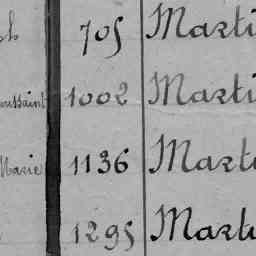 705 Marti
oussaint 1002 Marti
Marie 1136 Marti
1295 Marti